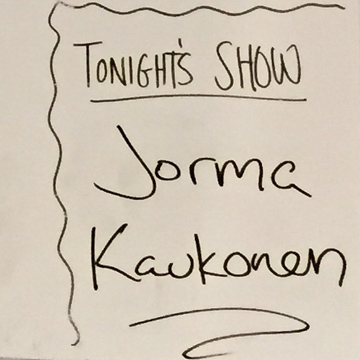 TONIGHT'S SHOW
Jorma
Kaukonen